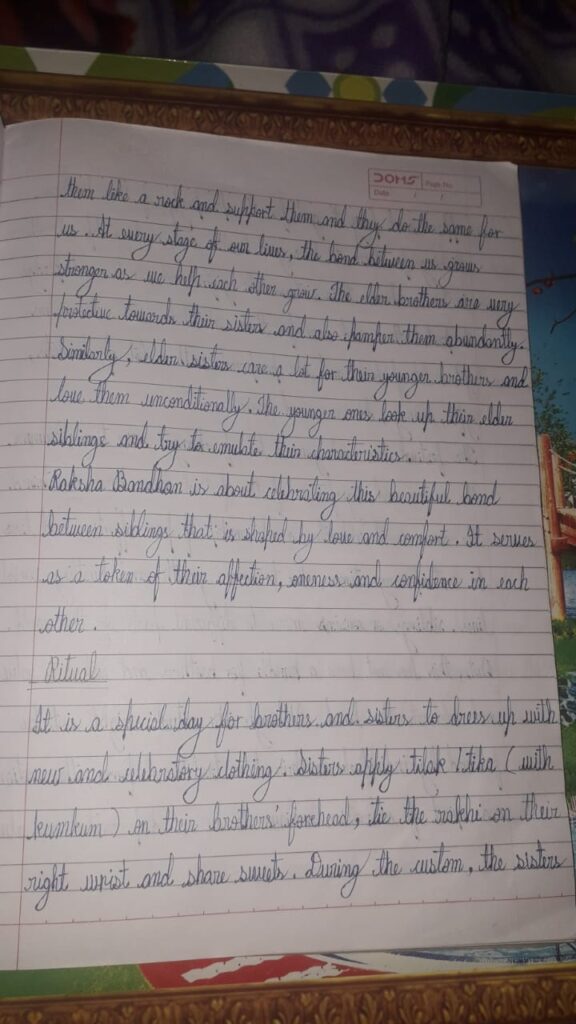 DOMS
Page No.
Date / /
them like a rock and support them and they do the same for
us. At every stage of our lives, the bond between us grows
stronger as we help each other grow. The elder brothers are very
protective towards their sisters and also pamper them abundantly.
Similarly, elder sisters care a lot for their younger brothers and
love them unconditionally. The younger ones look up their elder
siblings and try to emulate their characteristics.
Raksha Bandhan is about celebrating this beautiful bond
between siblings that is shaped by love and comfort. It serves
as a token of their affection, oneness and confidence in each
other.
Ritual
It is a special day for brothers and sisters to dress up with
new and celebratory clothing. Sisters apply tilak / tika (with
kumkum) on their brothers' forehead, tie the rakhi on their
right wrist and share sweets. During the custom, the sisters